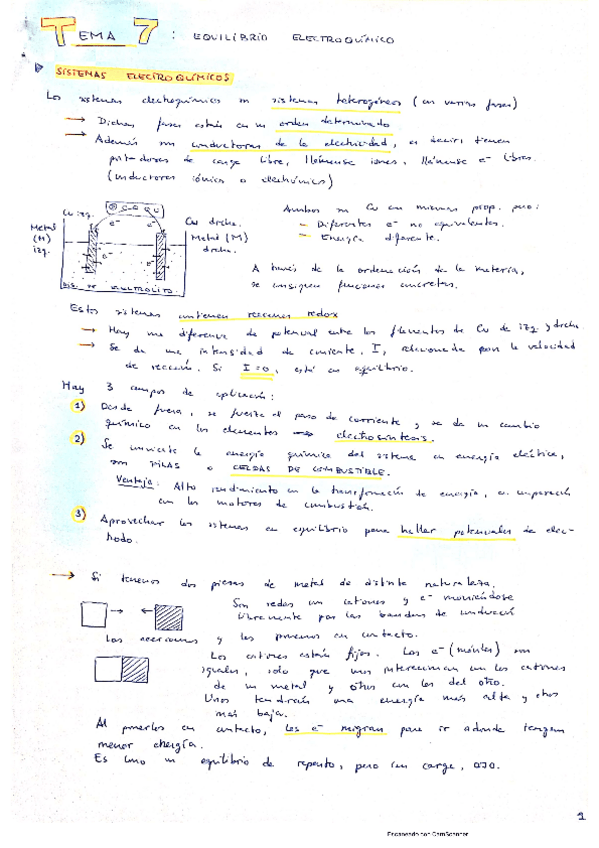 TEMA 7: EQUILIBRIO ELECTROQUÍMICO
SISTEMAS ELECTROQUÍMICOS
Los sistemas electroquímicos son sistemas heterogéneos (con varias fases)
→ Dichas fases están en un orden determinado
→ Además son conductores de la electricidad, es decir: tienen
portadores de carga libre, llámense iones, llámense e- libres.
(conductores iónicos o electrónicos)
Cu izq.
Cu dcha.
Metal (M) izq.
Metal (M) dcha.
e-
e-
DIS. DE ELECTROLITO
Ambos son Cu con mismas prop. pero:
- Diferentes e- no equivalentes.
- Energía diferente.
A través de la ordenación de la materia,
se consiguen funciones concretas.
Estos sistemas contienen reacciones redox
→ Hay una diferencia de potencial entre los fragmentos de Cu de izq. y dcha
→ Se da una intensidad de corriente, I, relacionada con la velocidad
de reacción. Si I=0, está en equilibrio.
Hay 3 campos de aplicación:
1) Desde fuera, se fuerza el paso de corriente y se da un cambio
químico en los elementos → electrosíntesis.
2) Se convierte la energía química del sistema en energía eléctrica,
son PILAS o CELDAS DE COMBUSTIBLE.
Ventaja: Alto rendimiento en la transformación de energía, en comparación
con los motores de combustión.
3) Aprovechar los sistemas en equilibrio para hallar potenciales de elec-
trodo.
→ Si tenemos dos piezas de metal de distinta naturaleza.
Son redes con cationes y e- moviéndose
libremente por las bandas de conducción
Los acercamos y los ponemos en contacto.
Los cationes están fijos. Los e- (móviles) son
iguales, solo que unos interaccionan con los cationes
de un metal y otros con los del otro.
Unos tendrán una energía más alta y otros
más baja.
Al ponerlos en contacto, los e- migran para ir adonde tengan
menor energía.
Es como un equilibrio de reparto, pero con carga, OJO.
1
Escaneado con CamScanner